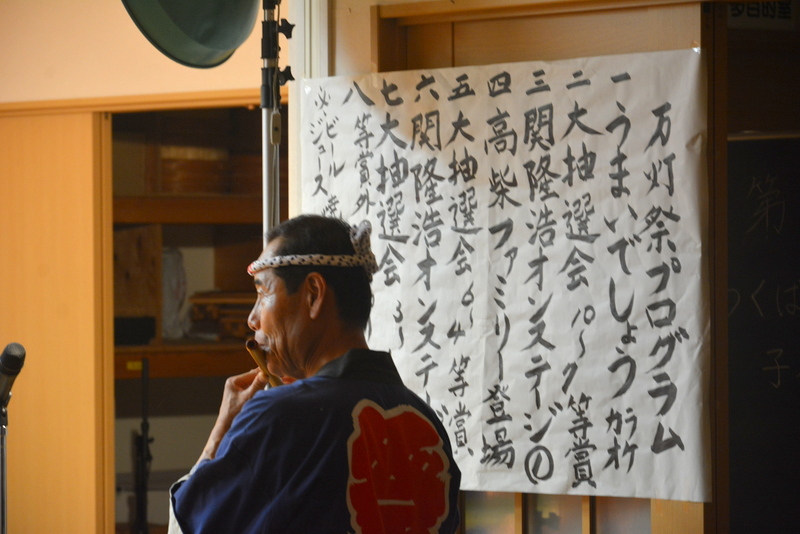 万灯祭プログラム
一 うまいでしょう カラオケ
二 大抽選会 10〜7等賞
三 関隆浩オンステージ①
四 高柴ファミリー登場
五 大抽選会 6〜4等賞
六 関隆浩オンステージ
七 大抽選会 3〜
八 等賞外
必ビール
ジュース
多目的室
第
つくは
子